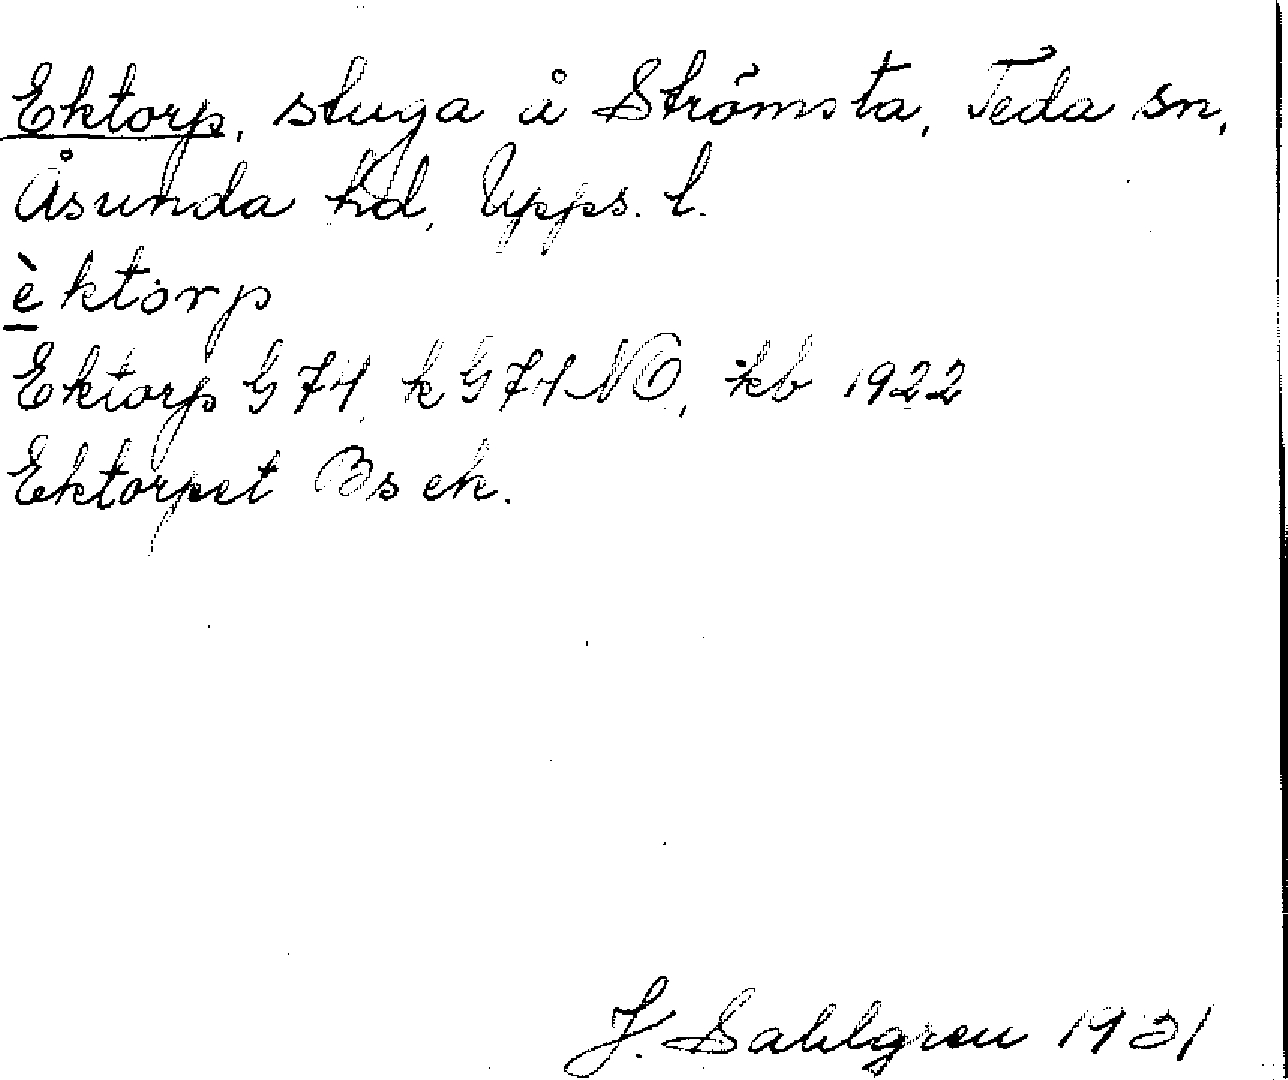 Ektorp, stuga å Strömsta, Teda sn,
Åsunda hd, Upps. l.
èktorp
Ektorp G 74, k G 74 NO, kb 1922
Ektorpet Bs ek.
J. Sahlgren 1931